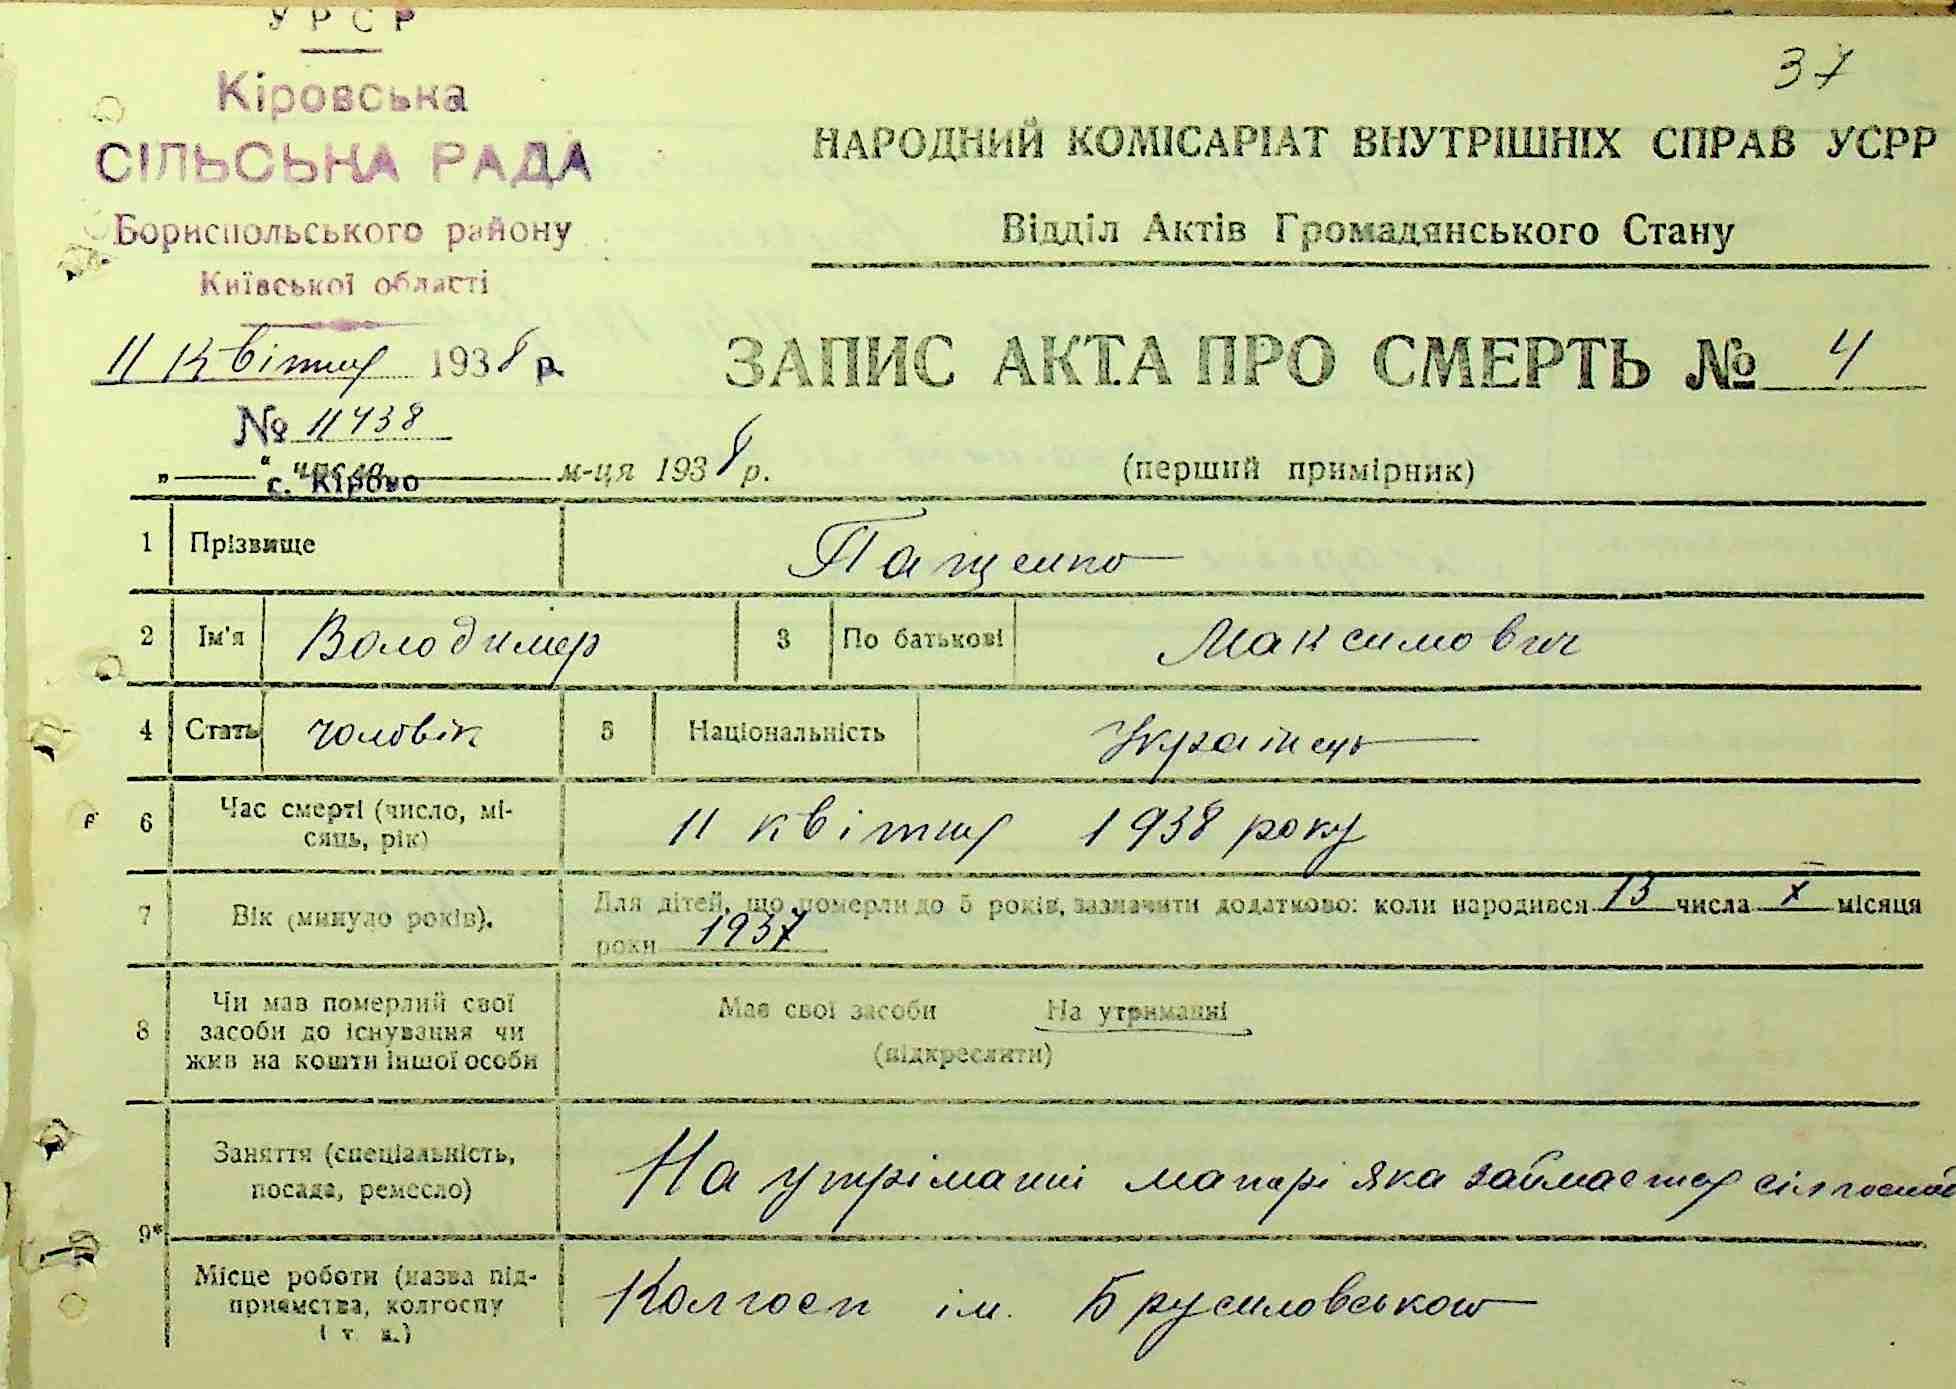 У Р С Р
37
Кіровська
СІЛЬСЬКА РАДА
Бориспольського району
Київської області
11 Квітня 1938 р.
№ 11438
с. Кірово
НАРОДНИЙ КОМІСАРІАТ ВНУТРІШНІХ СПРАВ УСРР
Відділ Актів Громадянського Стану
ЗАПИС АКТА ПРО СМЕРТЬ № 4
„ “ числа м-ця 1938 р.
(перший примірник)
1 Прізвище Пащенко
2 Ім'я Володимер 3 По батькові Максимович
4 Стать чоловік 5 Національність Українець
6 Час смерті (число, мі-
сяць, рік) 11 квітня 1938 року
7 Вік (минуло років). Для дітей, що померли до 5 років, зазначити додатково: коли народився 13 числа X місяця
роки 1937
8 Чи мав померлий свої
засоби до існування чи
жив на кошти іншої особи
Має свої засоби На утриманні
(підкреслити)
Заняття (спеціальність,
посада, ремесло) На утріманні матері яка займается
9*
Місце роботи (назва під-
приємства, колгоспу
і т. д.) Колгосп ім. Брусиловського